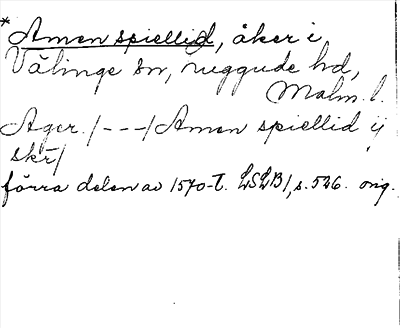 *Amen spiellid, åker i
Välinge sn, Luggude hd,
Malm. l.
Ager. /---/ Amen spiellid ij
skr/
förra delen av 1570-t. LSLB1, s. 526. orig.